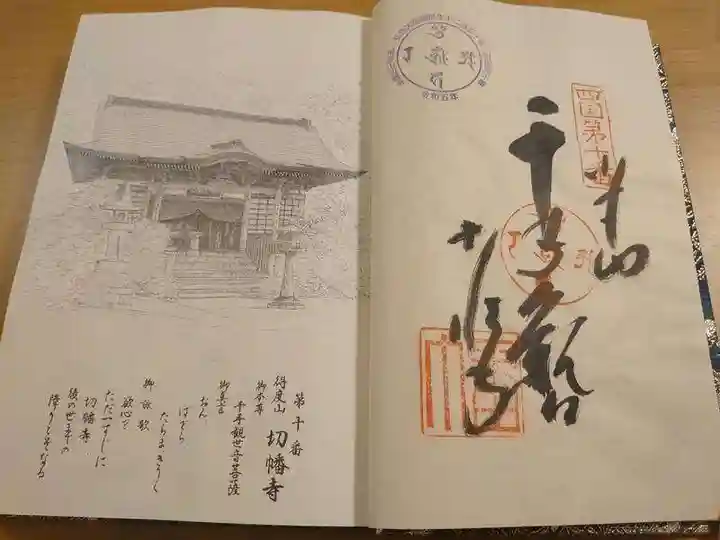 四国第十番
奉納
千手観音
切幡寺
令和五年
第十番
得度山 切幡寺
御本尊
千手観世音菩薩
御真言
おん
ばざら
たらま きりく
御詠歌
欲心を
ただ一すじに
切幡寺
後の世までの
障りとぞなる